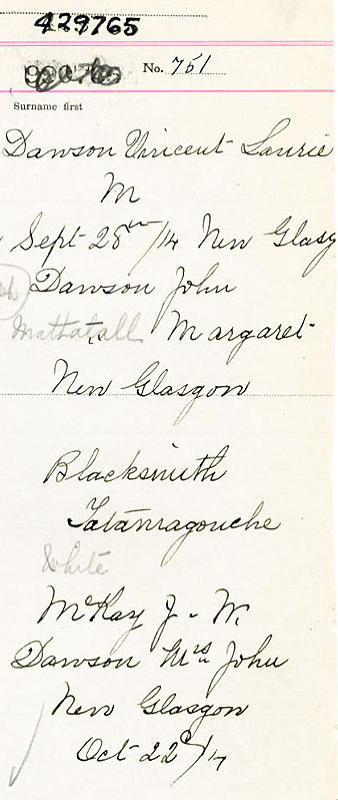 429765
No. 751
Surname first
Dawson Vincent Laurie
M
Sept 28th/14 New Glasg
Dawson John
Mattatall Margaret
New Glasgow
Blacksmith
Tatamagouche
White
McKay J. W.
Dawson Mrs John
New Glasgow
Oct 22d/14